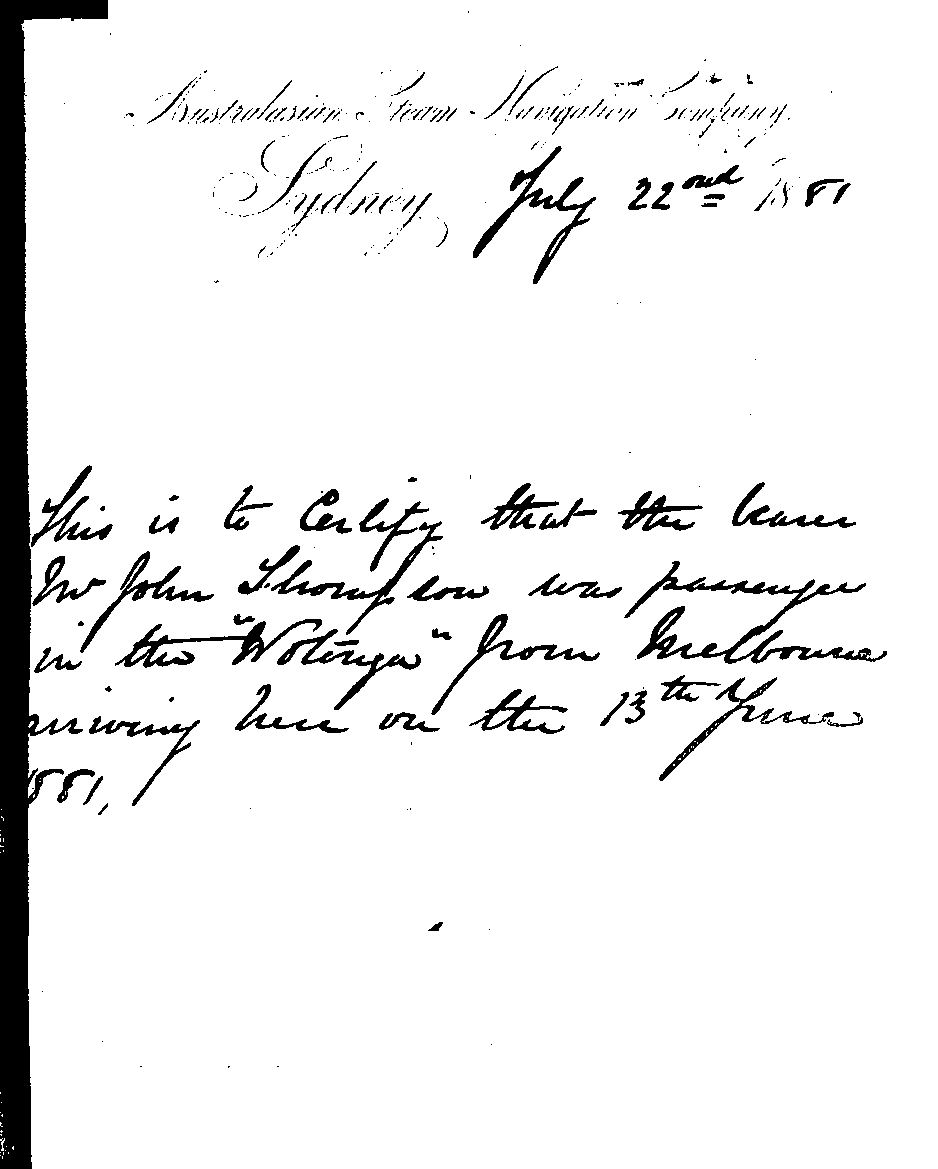 Australasian Steam Navigation Company.
Sydney July 22nd 1881
This is to Certify that the bearer
Mr John Thompson was passenger
in the "Wotonga" from Melbourne
arriving here on the 13th June
1881,